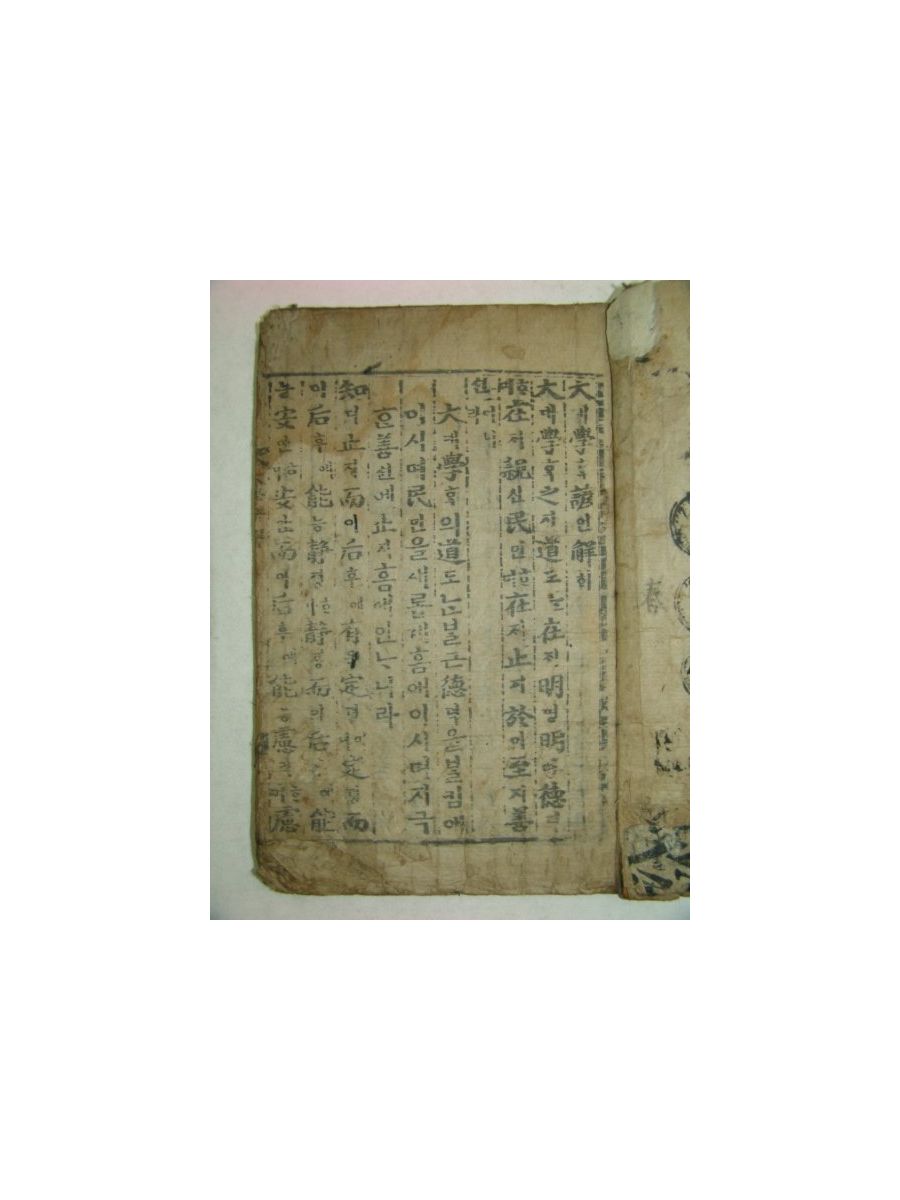 大대學ᄒᆞᆨ諺언解ᄒᆡ
大대學ᄒᆞᆨ之지道도ᄂᆞᆫ在ᄌᆡ明명明명德덕
ᄒᆞ며在ᄌᆡ親신民민ᄒᆞ며在ᄌᆡ止지於어至지善
션이니라
大대學ᄒᆞᆨ의道도ᄂᆞᆫᄇᆞᆯ근德덕을ᄇᆞᆯ킴애
이시며民민을새롭게홈애이시며지극
ᄒᆞᆫ善션에止지홈애인ᄂᆞ니라
知디止지而이后후에有유定뎡이니定뎡而
이后후에能능靜졍ᄒᆞ고靜졍而이后후에能
능安안ᄒᆞ고安안而이后후에能능慮려ᄒᆞ고慮